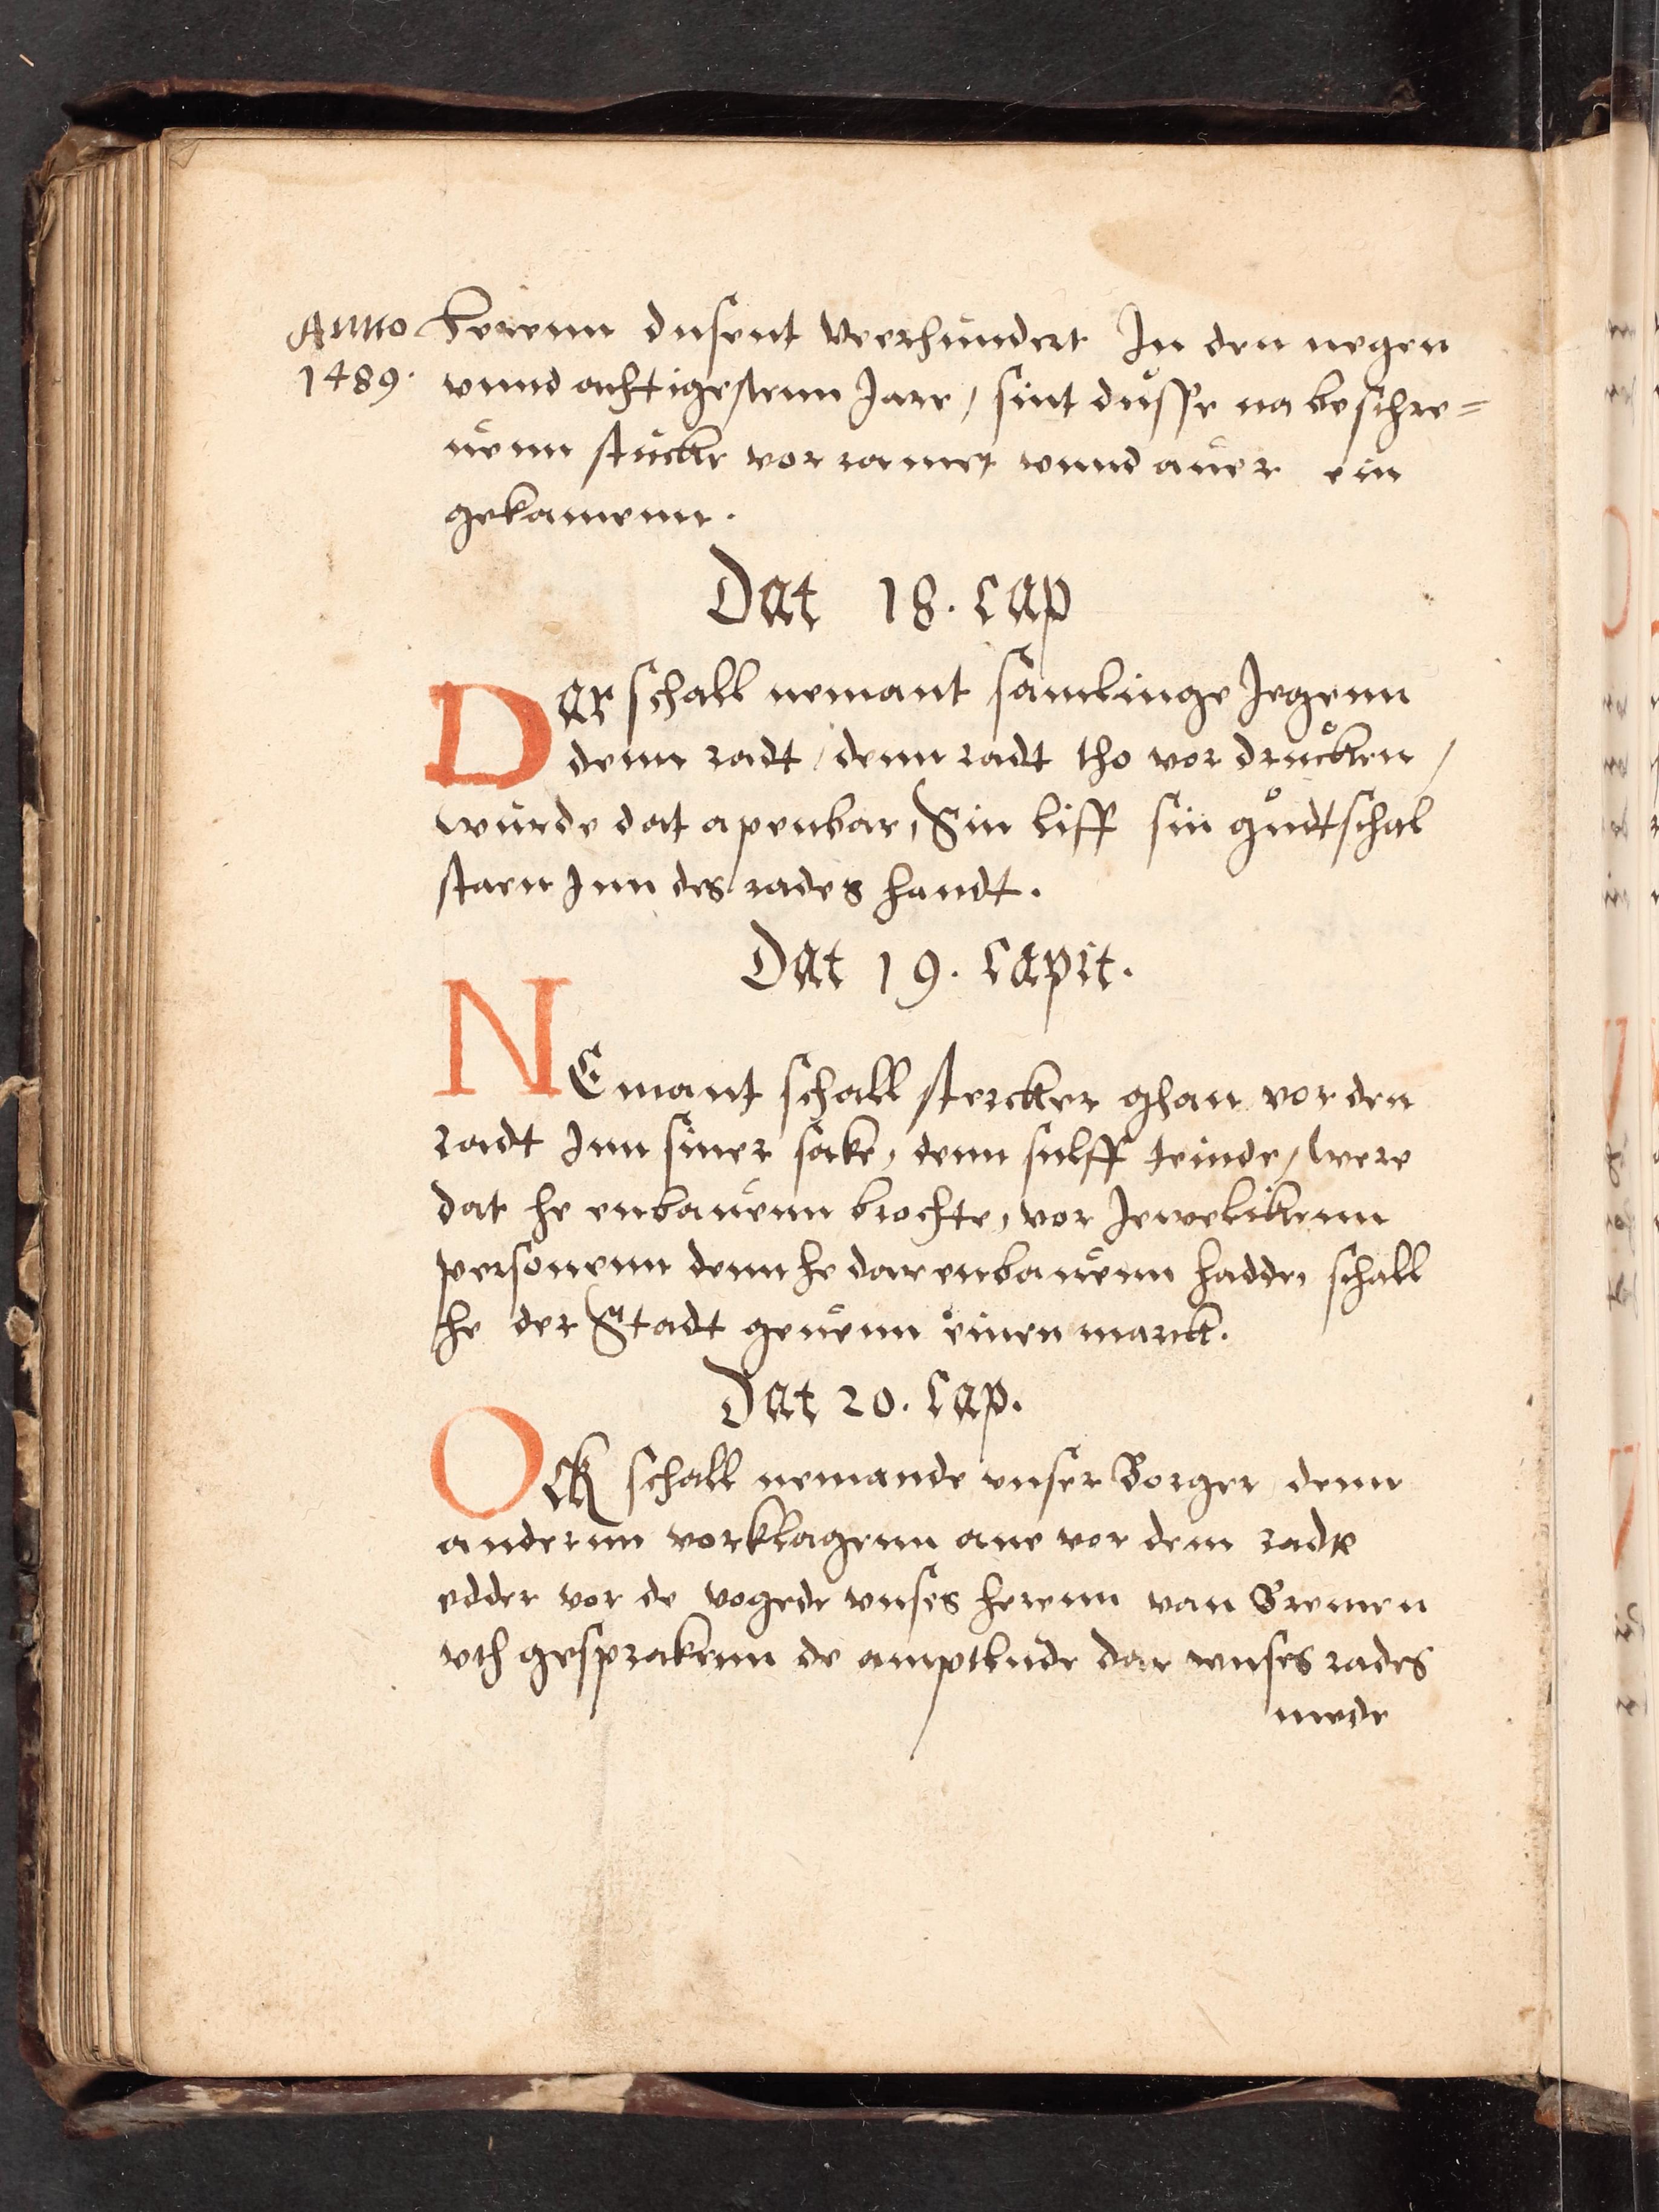 Anno
1489.
herenn dusent Veerhundert In den negen
vnnd achtigestenn Jare, sint dusse na beschre=
uenn stucke vor ramet vnnd auer ein
gekamenn.
Dat 18. cap
Dar schall nemant samlinge Jegenn
denn radt, denn radt tho vor drucken,
wurde dat apenbar, Sin liff sin gudt schal
staen Inn des rades handt.
Dat 19. capit.
NEmant schall stercker ghan vor den
radt Inn siner sake, denn sulff teinde, were
dat he enbauenn brochte, vor Jewelikenn
personenn denn he dar enbauenn hadde, schall
he der Stadt geuenn einen marck.
Dat 20. cap.
Ock schall nemande vnser Borger denn
anderenn vorklagenn ane vor dem rade
edder vor de vogede vnses herenn van Bremen
vth gesprakenn de amptlude dar vnses rades
mede